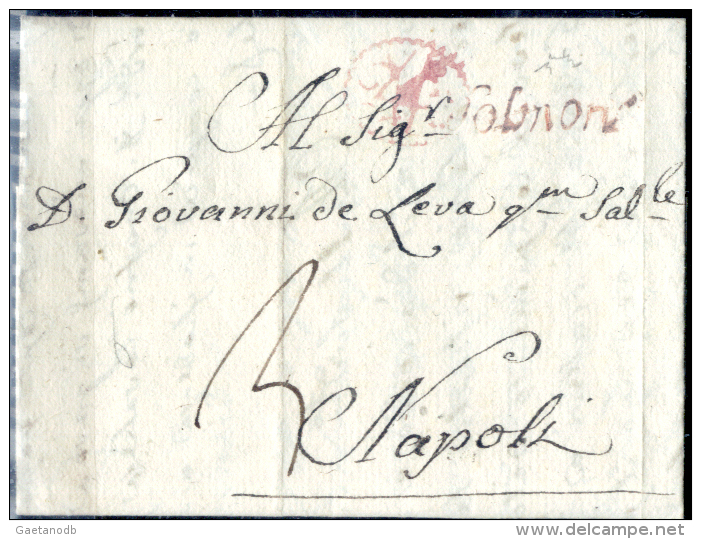 Al Sig.r
D. Giovanni de Leva qm Sal.le
3
Napoli
Gaetanodb
delcampe.net